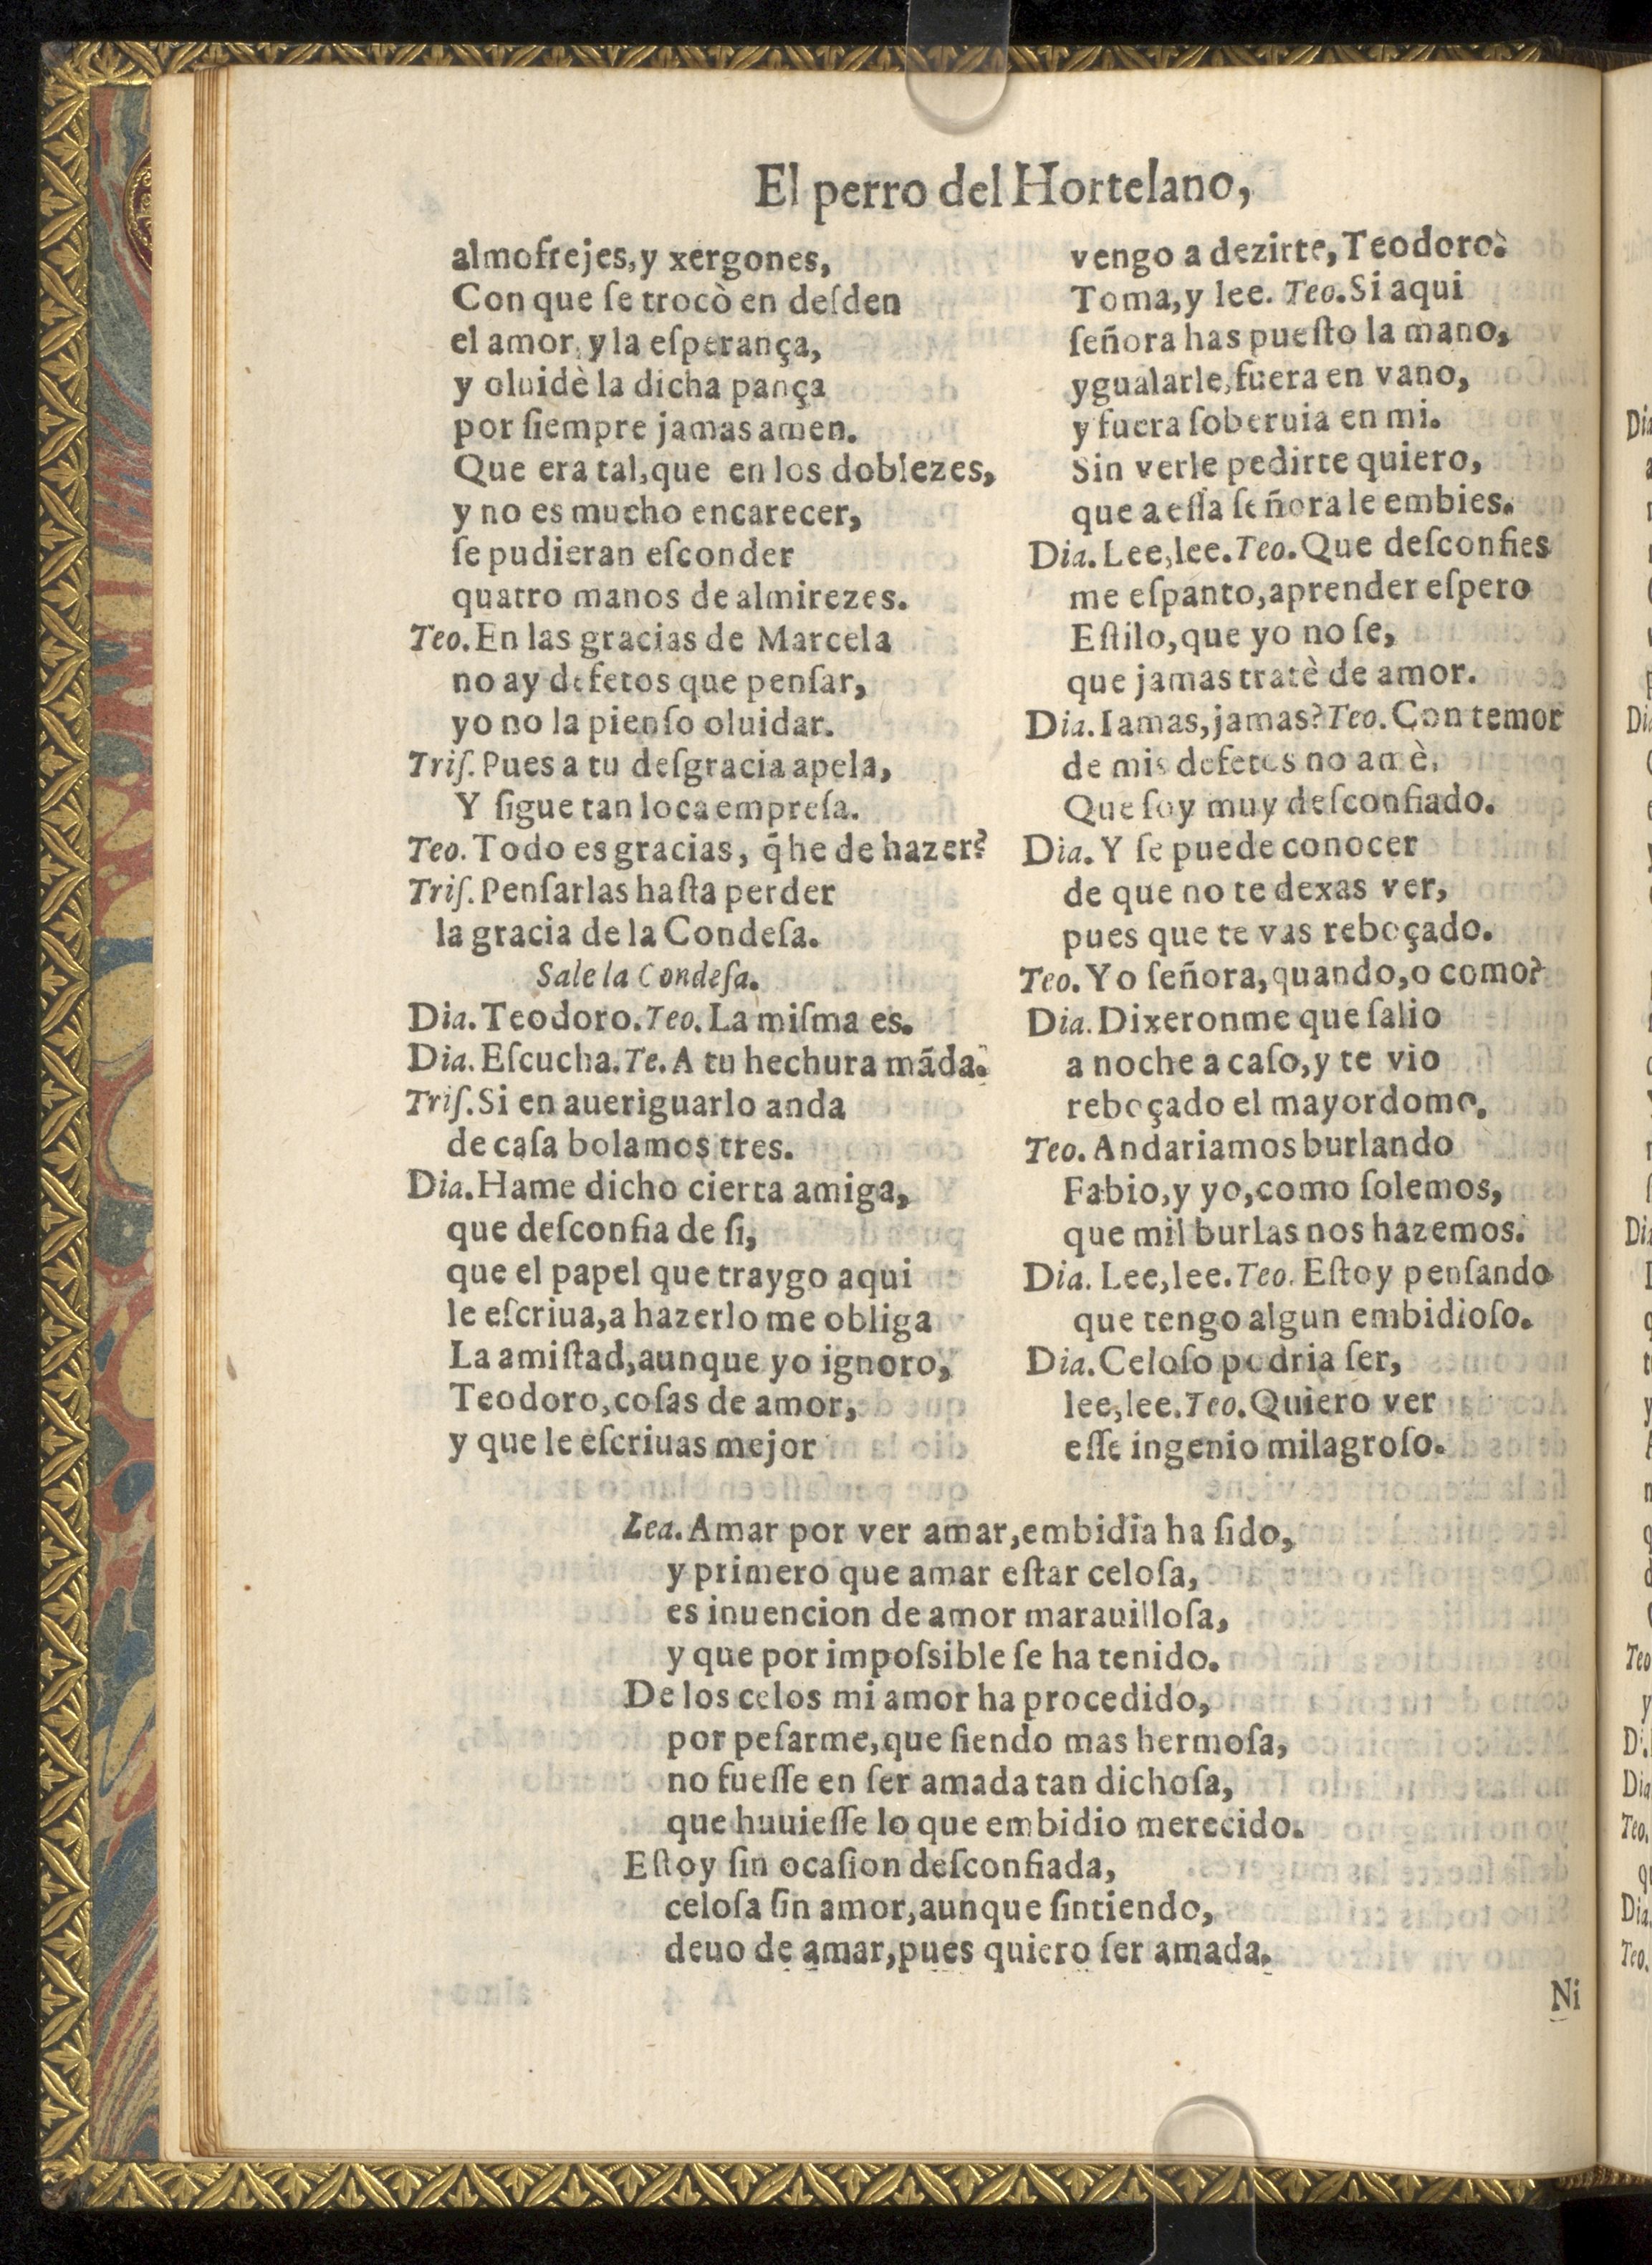 El perro del Hortelano,
almofrejes, y xergones,
Con que ſe trocò en deſden
el amor, y la eſperança,
y oluidè la dicha pança
por ſiempre jamas amen.
Que era tal, que en los doblezes,
y no es mucho encarecer,
ſe pudieran eſconder
quatro manos de almirezes.
Teo. En las gracias de Marcela
no ay defetos que penſar,
yo no la pienſo oluidar.
Triſ. Pues a tu deſgracia apela,
Y ſigue tan loca empreſa.
Teo. Todo es gracias, q̃ he de hazer?
Triſ. Penſarlas haſta perder
la gracia de la Condeſa.
Sale la Condeſa.
Dia. Teodoro. Teo. La miſma es.
Dia. Eſcucha. Te. A tu hechura mãda.
Triſ. Si en aueriguarlo anda
de caſa bolamos tres.
Dia. Hame dicho cierta amiga,
que deſconfia de ſi,
que el papel que traygo aqui
le eſcriua, a hazerlo me obliga
La amiſtad, aunque yo ignoro,
Teodoro, coſas de amor,
y que le eſcriuas mejor
vengo a dezirte, Teodoro.
Toma, y lee. Teo. Si aqui
ſeñora has pueſto la mano,
ygualarle, fuera en vano,
y fuera ſoberuia en mi.
Sin verle pedirte quiero,
que a eſſa ſeñora le embies.
Dia. Lee, lee. Teo. Que deſconfies
me eſpanto, aprender eſpero
Eſtilo, que yo no ſe,
que jamas tratè de amor.
Dia. Iamas, jamas? Teo. Con temor
de mis defetos no amè,
Que ſoy muy deſconfiado.
Dia. Y ſe puede conocer
de que no te dexas ver,
pues que te vas reboçado.
Teo. Yo ſeñora, quando, o como?
Dia. Dixeronme que ſalio
a noche a caſo, y te vio
reboçado el mayordomo.
Teo. Andariamos burlando
Fabio, y yo, como ſolemos,
que mil burlas nos hazemos.
Dia. Lee, lee. Teo. Eſtoy penſando
que tengo algun embidioſo.
Dia. Celoſo podria ſer,
lee, lee. Teo. Quiero ver
eſſe ingenio milagroſo.
Lea. Amar por ver amar, embidia ha ſido,
y primero que amar eſtar celoſa,
es inuencion de amor marauilloſa,
y que por impoſsible ſe ha tenido.
De los celos mi amor ha procedido,
por peſarme, que ſiendo mas hermoſa,
no fueſſe en ſer amada tan dichoſa,
que huuieſſe lo que embidio merecido.
Eſtoy ſin ocaſion deſconfiada,
celoſa ſin amor, aunque ſintiendo,
deuo de amar, pues quiero ſer amada.
Ni